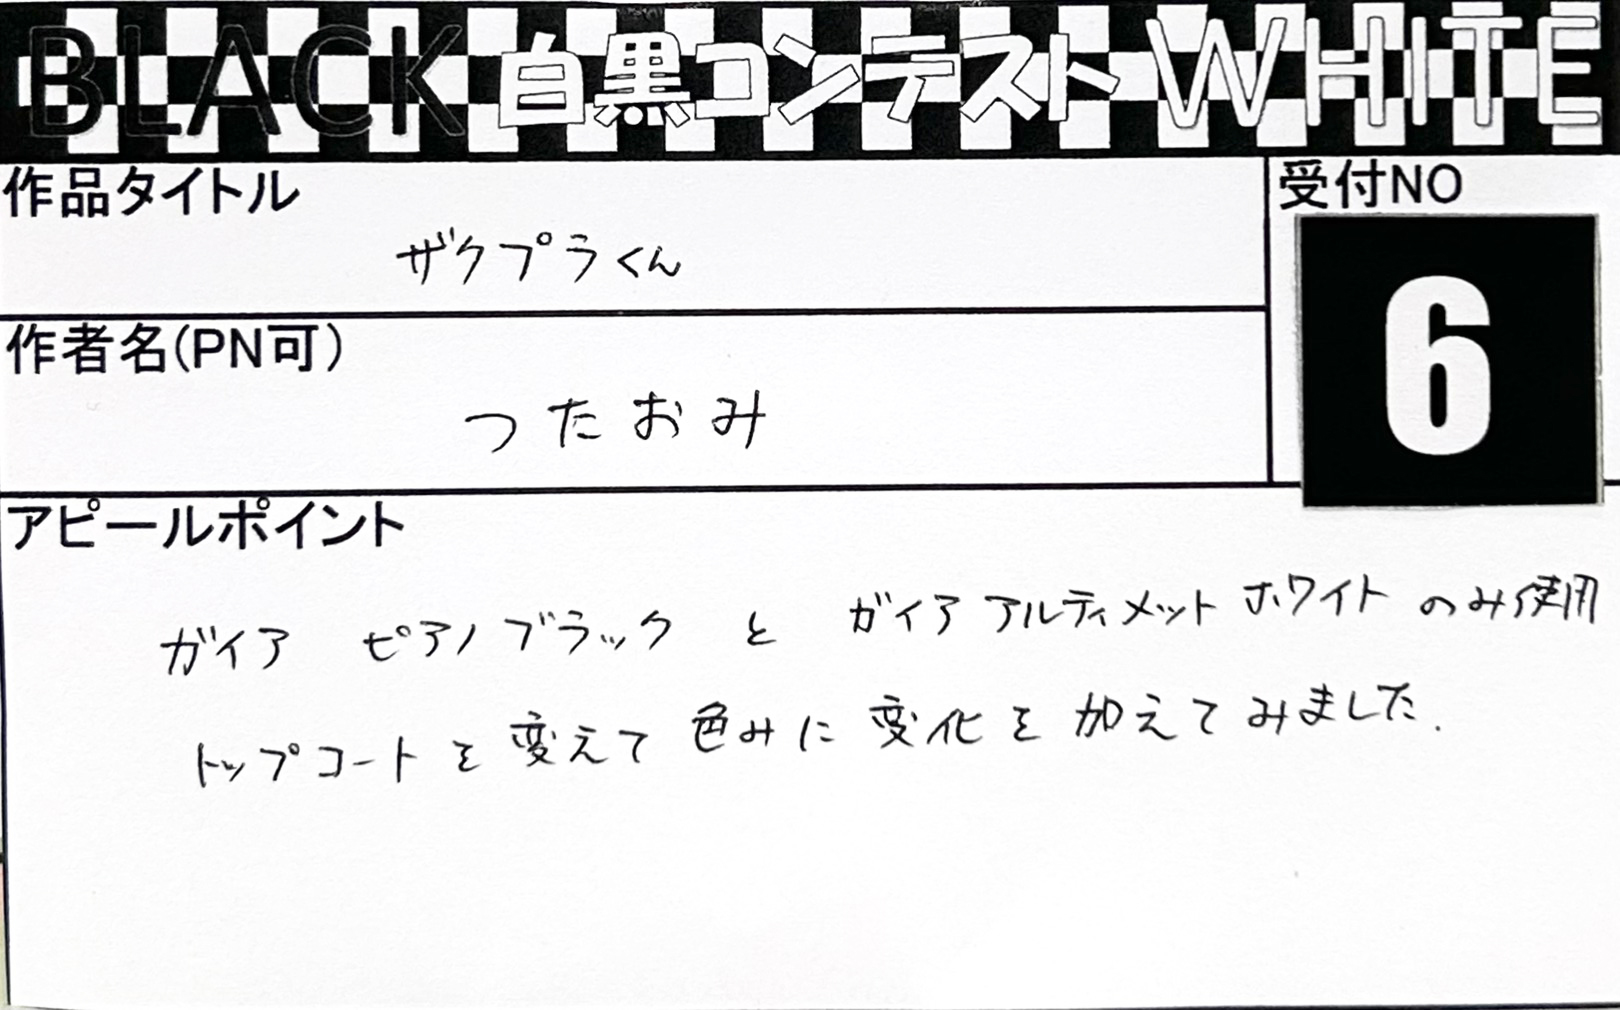 BLACK 白黒コンテスト WHITE
作品タイトル
ザクプラくん
受付NO
6
作者名(PN可)
つたおみ
アピールポイント
ガイア ピアノブラック と ガイア アルティメット ホワイト のみ使用
トップコートを変えて色みに変化を加えてみました.